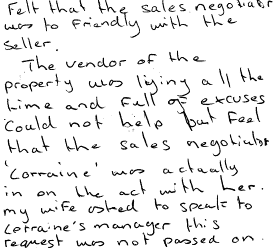 Felt that the sales negotiator
was to friendly with the
seller.
The vendor of the
property was lying all the
time and full of excuses
Could not help but feel
that the sales negotiator
'Lorraine' was actually
in on the act with her.
my wife asked to speak to
Lorraine's manager this
request was not passed on.